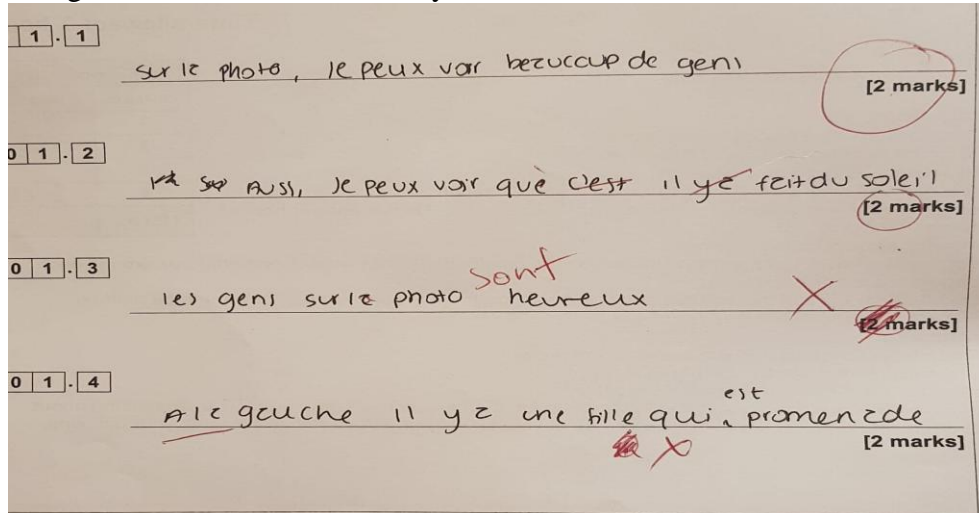 1 . 1
sur la photo, je peux voir beaucoup de gens
[2 marks]
0 1 . 2
Aussi, je peux voir que c'est il y a fait du soleil
[2 marks]
0 1 . 3
sont
les gens sur la photo heureux
[2 marks]
0 1 . 4
est
A la gauche il y a une fille qui promenade
[2 marks]